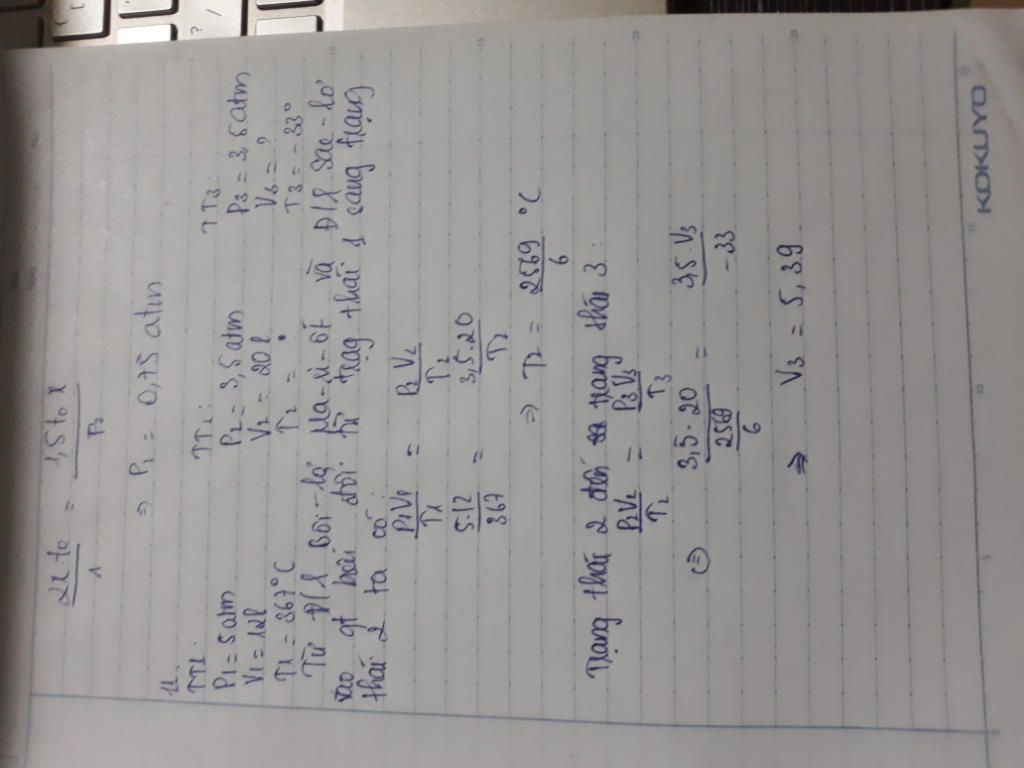 2x.to/1 = 1,5to x/P2
⇒ P2 = 0,75 atm
11.
TT1: TT2: TT3:
P1 = 5atm P2 = 3,5atm P3 = 3,5atm
V1 = 12l V2 = 20l V3 = ?
T1 = 367°C T2 = T3 = -33°
Từ Đ/l Bôi-lơ Ma-ri-ốt và Đ/l Sác-lơ
vào qt biến đổi từ trạg thái 1 sang trạng
thái 2 ta có:
P1V1/T1 = P2V2/T2
5.12/367 = 3,5.20/T2
⇒ T2 = 2569/6 °C
Trạng thái 2 đối trạng thái 3:
P2V2/T2 = P3V3/T3
⇔ 3,5.20/(2569/6) = 3,5.V3/-33
⇒ V3 = 5,39
KOKUYO